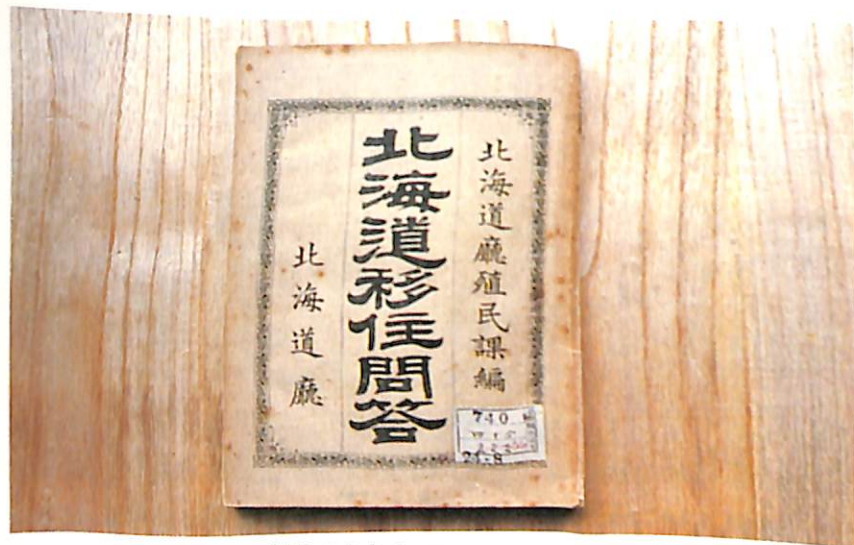 北海道廳殖民課編
北海道移住問答
北海道廳
740
21.8